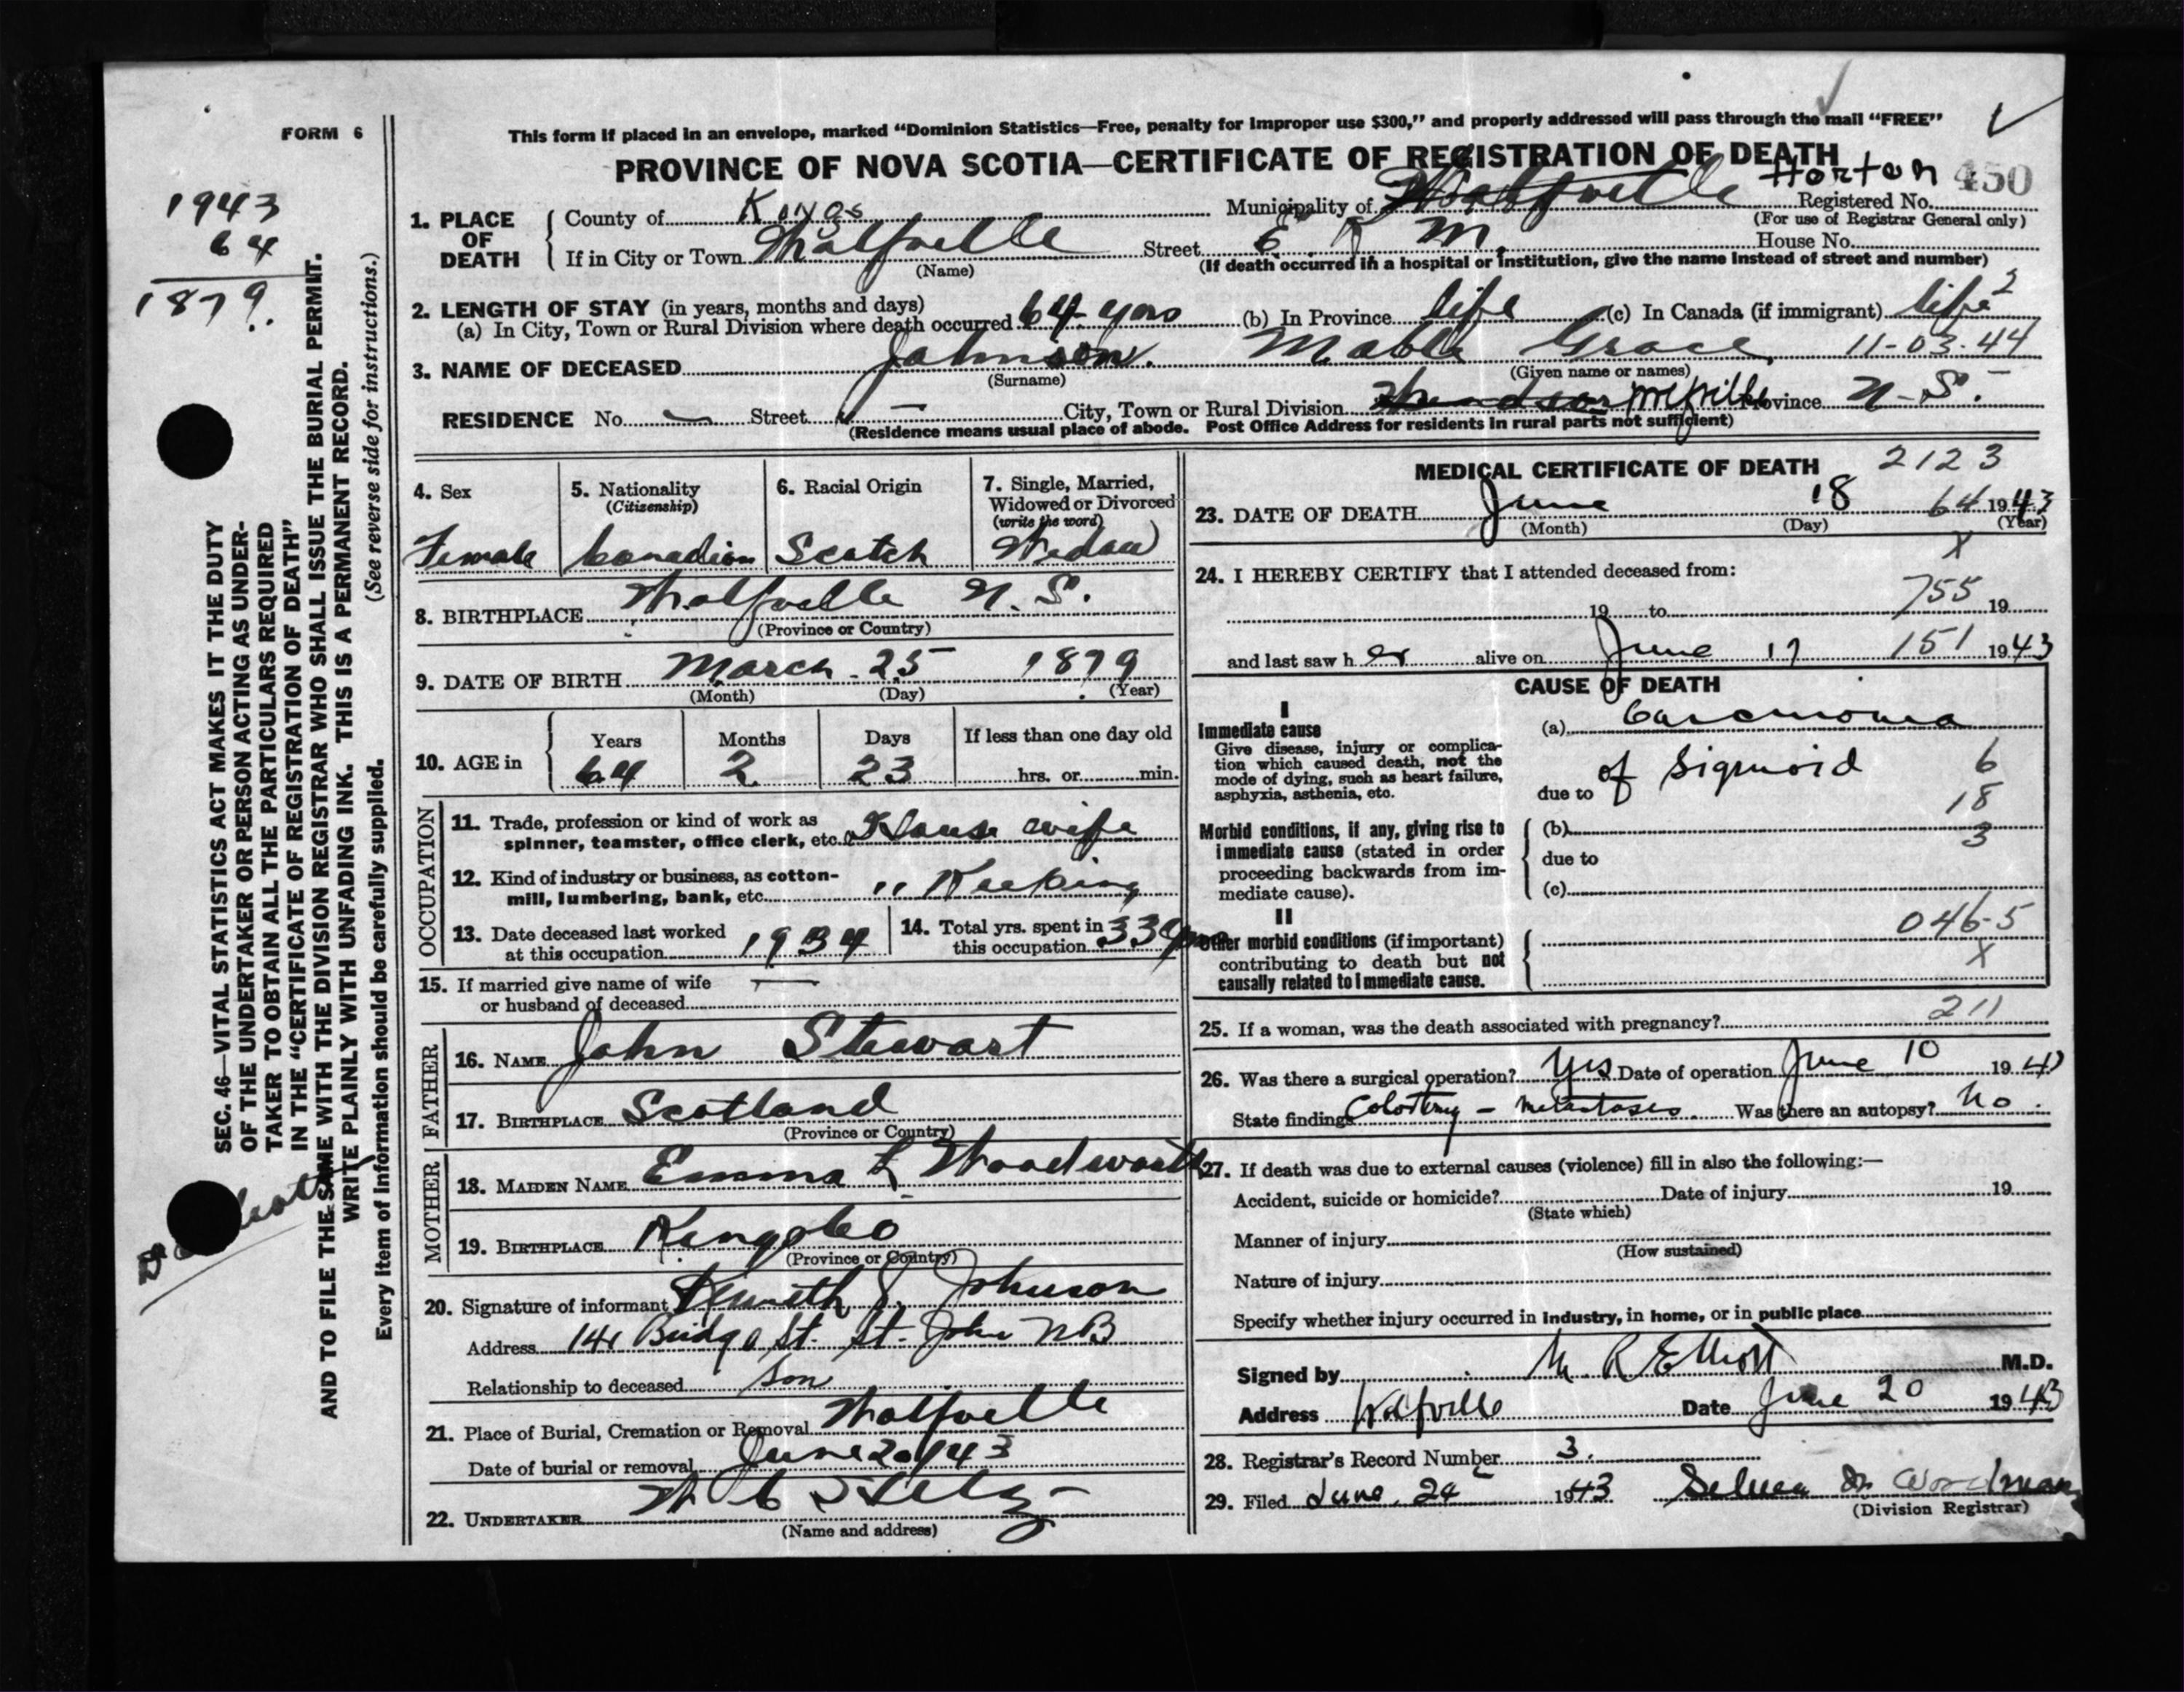 FORM 6
This form if placed in an envelope, marked “Dominion Statistics—Free, penalty for improper use $300,” and properly addressed will pass through the mail “FREE”
PROVINCE OF NOVA SCOTIA—CERTIFICATE OF REGISTRATION OF DEATH
1943
64
1879
SEC. 46—VITAL STATISTICS ACT MAKES IT THE DUTY
OF THE UNDERTAKER OR PERSON ACTING AS UNDER-
TAKER TO OBTAIN ALL THE PARTICULARS REQUIRED
IN THE “CERTIFICATE OF REGISTRATION OF DEATH”
AND TO FILE THE SAME WITH THE DIVISION REGISTRAR WHO SHALL ISSUE THE BURIAL PERMIT.
WRITE PLAINLY WITH UNFADING INK. THIS IS A PERMANENT RECORD.
Every item of information should be carefully supplied. (See reverse side for instructions.)
Horton 450
1. PLACE OF DEATH County of Kings Municipality of Wolfville Registered No.
(For use of Registrar General only)
If in City or Town Wolfville Street E K M. House No.
(Name) (If death occurred in a hospital or institution, give the name instead of street and number)
2. LENGTH OF STAY (in years, months and days)
(a) In City, Town or Rural Division where death occurred 64 yrs (b) In Province life (c) In Canada (if immigrant) life 2
3. NAME OF DECEASED Johnson. Mable Grace 11-03-44
(Surname) (Given name or names)
RESIDENCE No. — Street — City, Town or Rural Division Windsor Wolfville Province N.S.
(Residence means usual place of abode. Post Office Address for residents in rural parts not sufficient)
4. Sex 5. Nationality (Citizenship) 6. Racial Origin 7. Single, Married, Widowed or Divorced (write the word)
Female Canadian Scotch Widow
8. BIRTHPLACE Wolfville N.S.
(Province or Country)
9. DATE OF BIRTH March 25 1879
(Month) (Day) (Year)
10. AGE in Years Months Days If less than one day old
64 2 23 hrs. or min.
OCCUPATION
11. Trade, profession or kind of work as spinner, teamster, office clerk, etc. House wife
12. Kind of industry or business, as cotton-mill, lumbering, bank, etc. " Keeping
13. Date deceased last worked at this occupation 1934 14. Total yrs. spent in this occupation 33 yrs
15. If married give name of wife or husband of deceased —
FATHER
16. NAME John Stewart
17. BIRTHPLACE Scotland
(Province or Country)
MOTHER
18. MAIDEN NAME Emma L Woodworth
19. BIRTHPLACE Kings Co
(Province or Country)
20. Signature of informant Kenneth J. Johnson
Address 141 Bridge St. St. John NB
Relationship to deceased Son
21. Place of Burial, Cremation or Removal Wolfville
Date of burial or removal June 20/43
22. UNDERTAKER
(Name and address)
MEDICAL CERTIFICATE OF DEATH 2123
23. DATE OF DEATH June 18 64 1943
(Month) (Day) (Year)
X
24. I HEREBY CERTIFY that I attended deceased from:
19 to 755 19
and last saw her alive on June 17 151 1943
CAUSE OF DEATH
I
Immediate cause
Give disease, injury or complica-
tion which caused death, not the
mode of dying, such as heart failure,
asphyxia, asthenia, etc.
(a) Carcinoma
due to of Sigmoid 6
18
Morbid conditions, if any, giving rise to
immediate cause (stated in order
proceeding backwards from im-
mediate cause).
(b) 3
due to
(c)
II
Other morbid conditions (if important)
contributing to death but not
causally related to immediate cause.
046-5
X
25. If a woman, was the death associated with pregnancy? 211
26. Was there a surgical operation? Yes Date of operation June 10 194
State findings Colostomy - metastases. Was there an autopsy? No.
27. If death was due to external causes (violence) fill in also the following:—
Accident, suicide or homicide? Date of injury 19
(State which)
Manner of injury
(How sustained)
Nature of injury
Specify whether injury occurred in industry, in home, or in public place
Signed by M. R Elliott M.D.
Address Wolfville Date June 20 1943
28. Registrar’s Record Number 3.
29. Filed June 24 1943 Woodman
(Division Registrar)